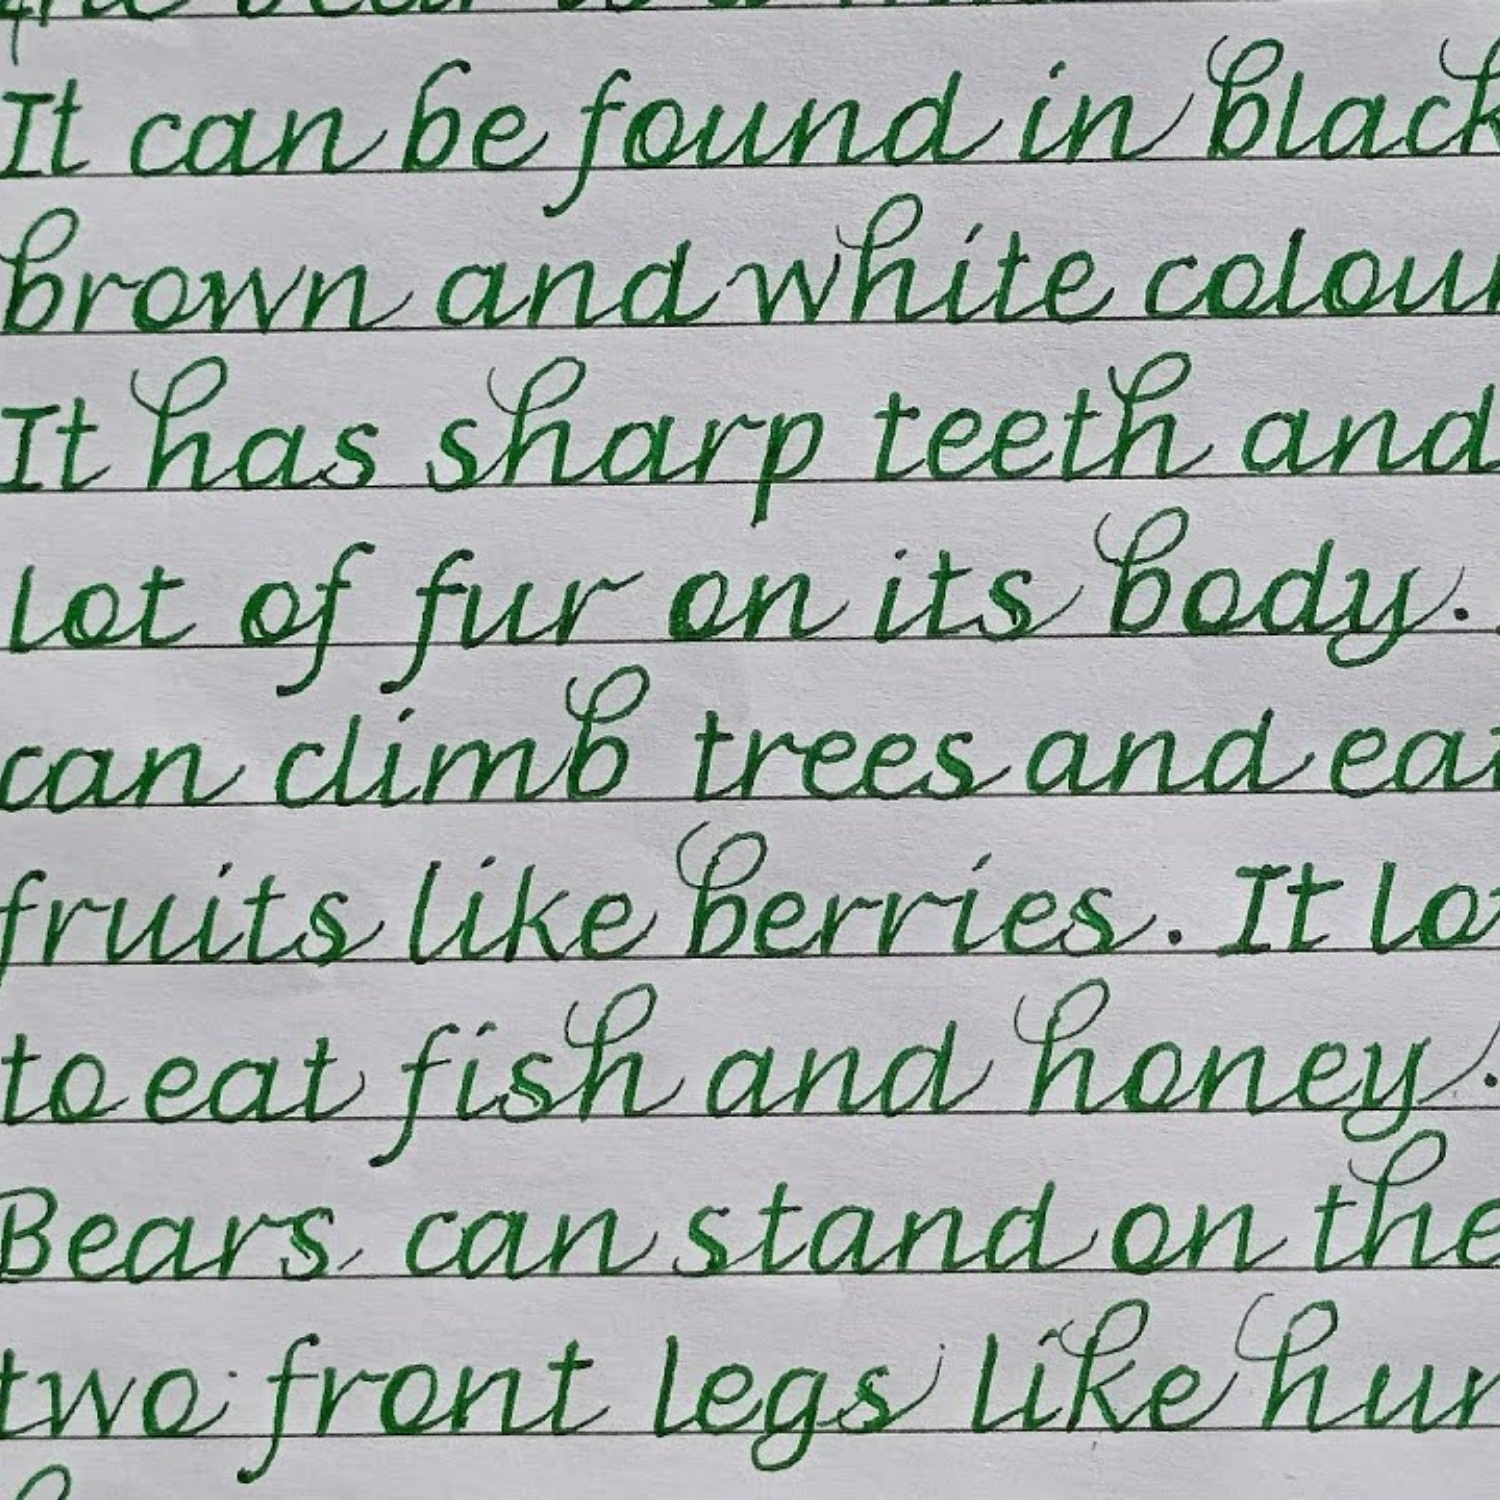 It can be found in black
brown and white colour
It has sharp teeth and
lot of fur on its body.
can climb trees and eat
fruits like berries. It
to eat fish and honey.
Bears can stand on the
two front legs like